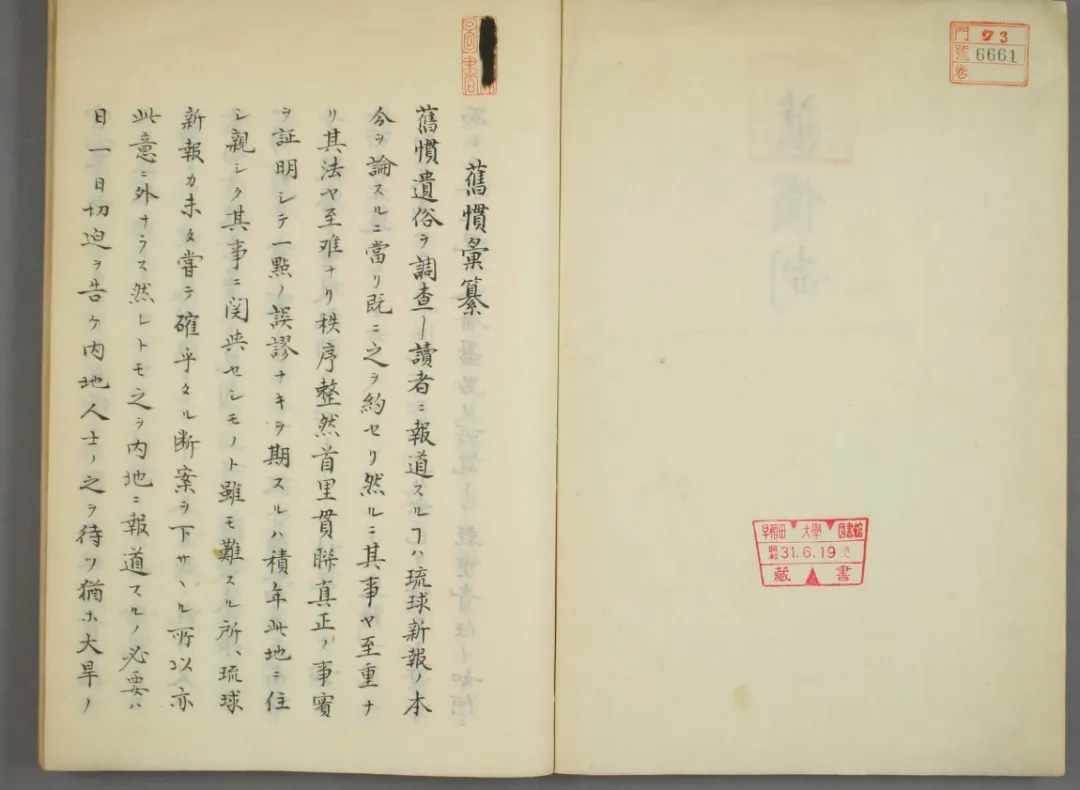 門 ワ3
號 6661
卷
早稲田大學圖書館
昭和31.6.19
藏書
圖書
舊慣彙纂
舊慣遺俗ヲ調査シ讀者ニ報道スルヿハ琉球新報ノ本
今ヲ論スルニ當リ既ニ之ヲ約セリ然ルニ其事ヤ至重ナ
リ其法ヤ至难ナリ秩序整然首里貫聯真正ノ事實
ヲ証明シテ一點ノ誤謬ナキヲ期スルハ積年此地ニ住
シ親シク其事ニ関与セシモノト雖モ難スル所、琉球
新報カ未タ甞テ確乎タル断案ヲ下サヽル所以亦
此意ニ外ナラス然レトモ之ヲ内地ニ報道スルノ必要ハ
日一日切迫ヲ告ケ内地人士ノ之ヲ待ツ猶ホ大旱ノ